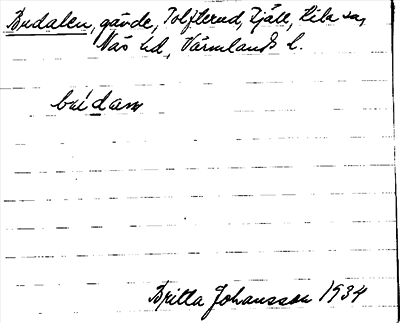 Budalen, gärde, Tolfterud, Fjäll, Kila sn,
Näs hd, Värmlands l.
bu̇́dan
Britta Johansson 1934